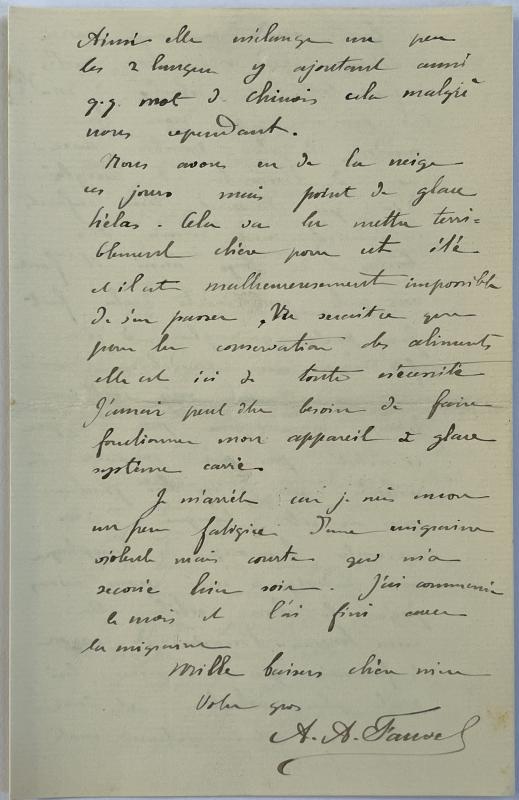 Ainsi elle mélange un peu
les 2 langues y ajoutant aussi
q.q. mot de chinois cela malgré
nous cependant.
Nous avons eu de la neige
ces jours mais point de glace
hélas. Cela va la mettre terri-
blement chère pour cet été
et il est malheureusement impossible
de s'en passer. Ne serait ce que
pour la conservation des aliments
elle est ici de toute nécessité
J'aurai peut être besoin de faire
fonctionner mon appareil à glace
système carré.
Je m'arrête car je suis encore
un peu fatigué d'une migraine
violente mais courte qui m'a
secoué hier soir. J'ai commencé
le mois et l'ai fini avec
la migraine
Mille baisers chère mère
Votre gros
A. A. Fauvel